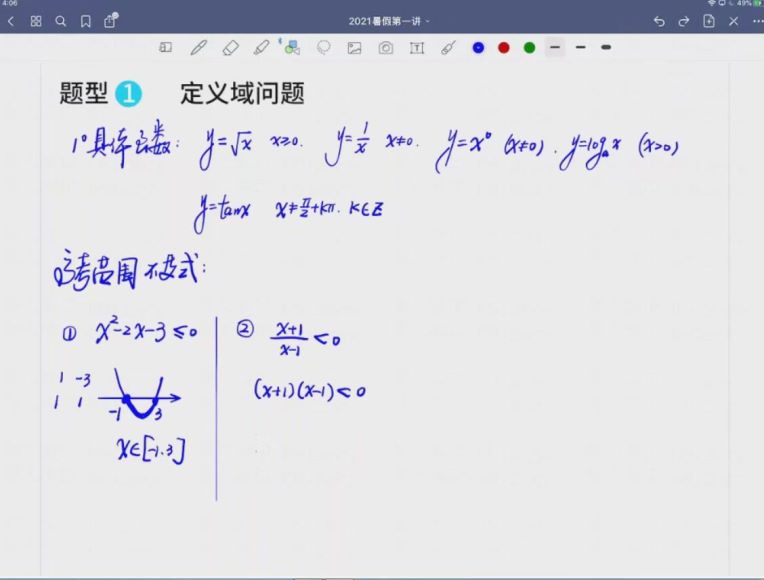 4:06
49%
2021暑假第一讲
题型 1 定义域问题
1° 具体函数: y=√x x≥0. y=1/x x≠0. y=x⁰ (x≠0). y=logₐx (x>0)
y=tanx x≠π/2+kπ. k∈Z
高考范围不等式:
① x²-2x-3≤0
1 -3
1 1
-1 3
x∈[-1.3]
② (x+1)/(x-1)<0
(x+1)(x-1)<0